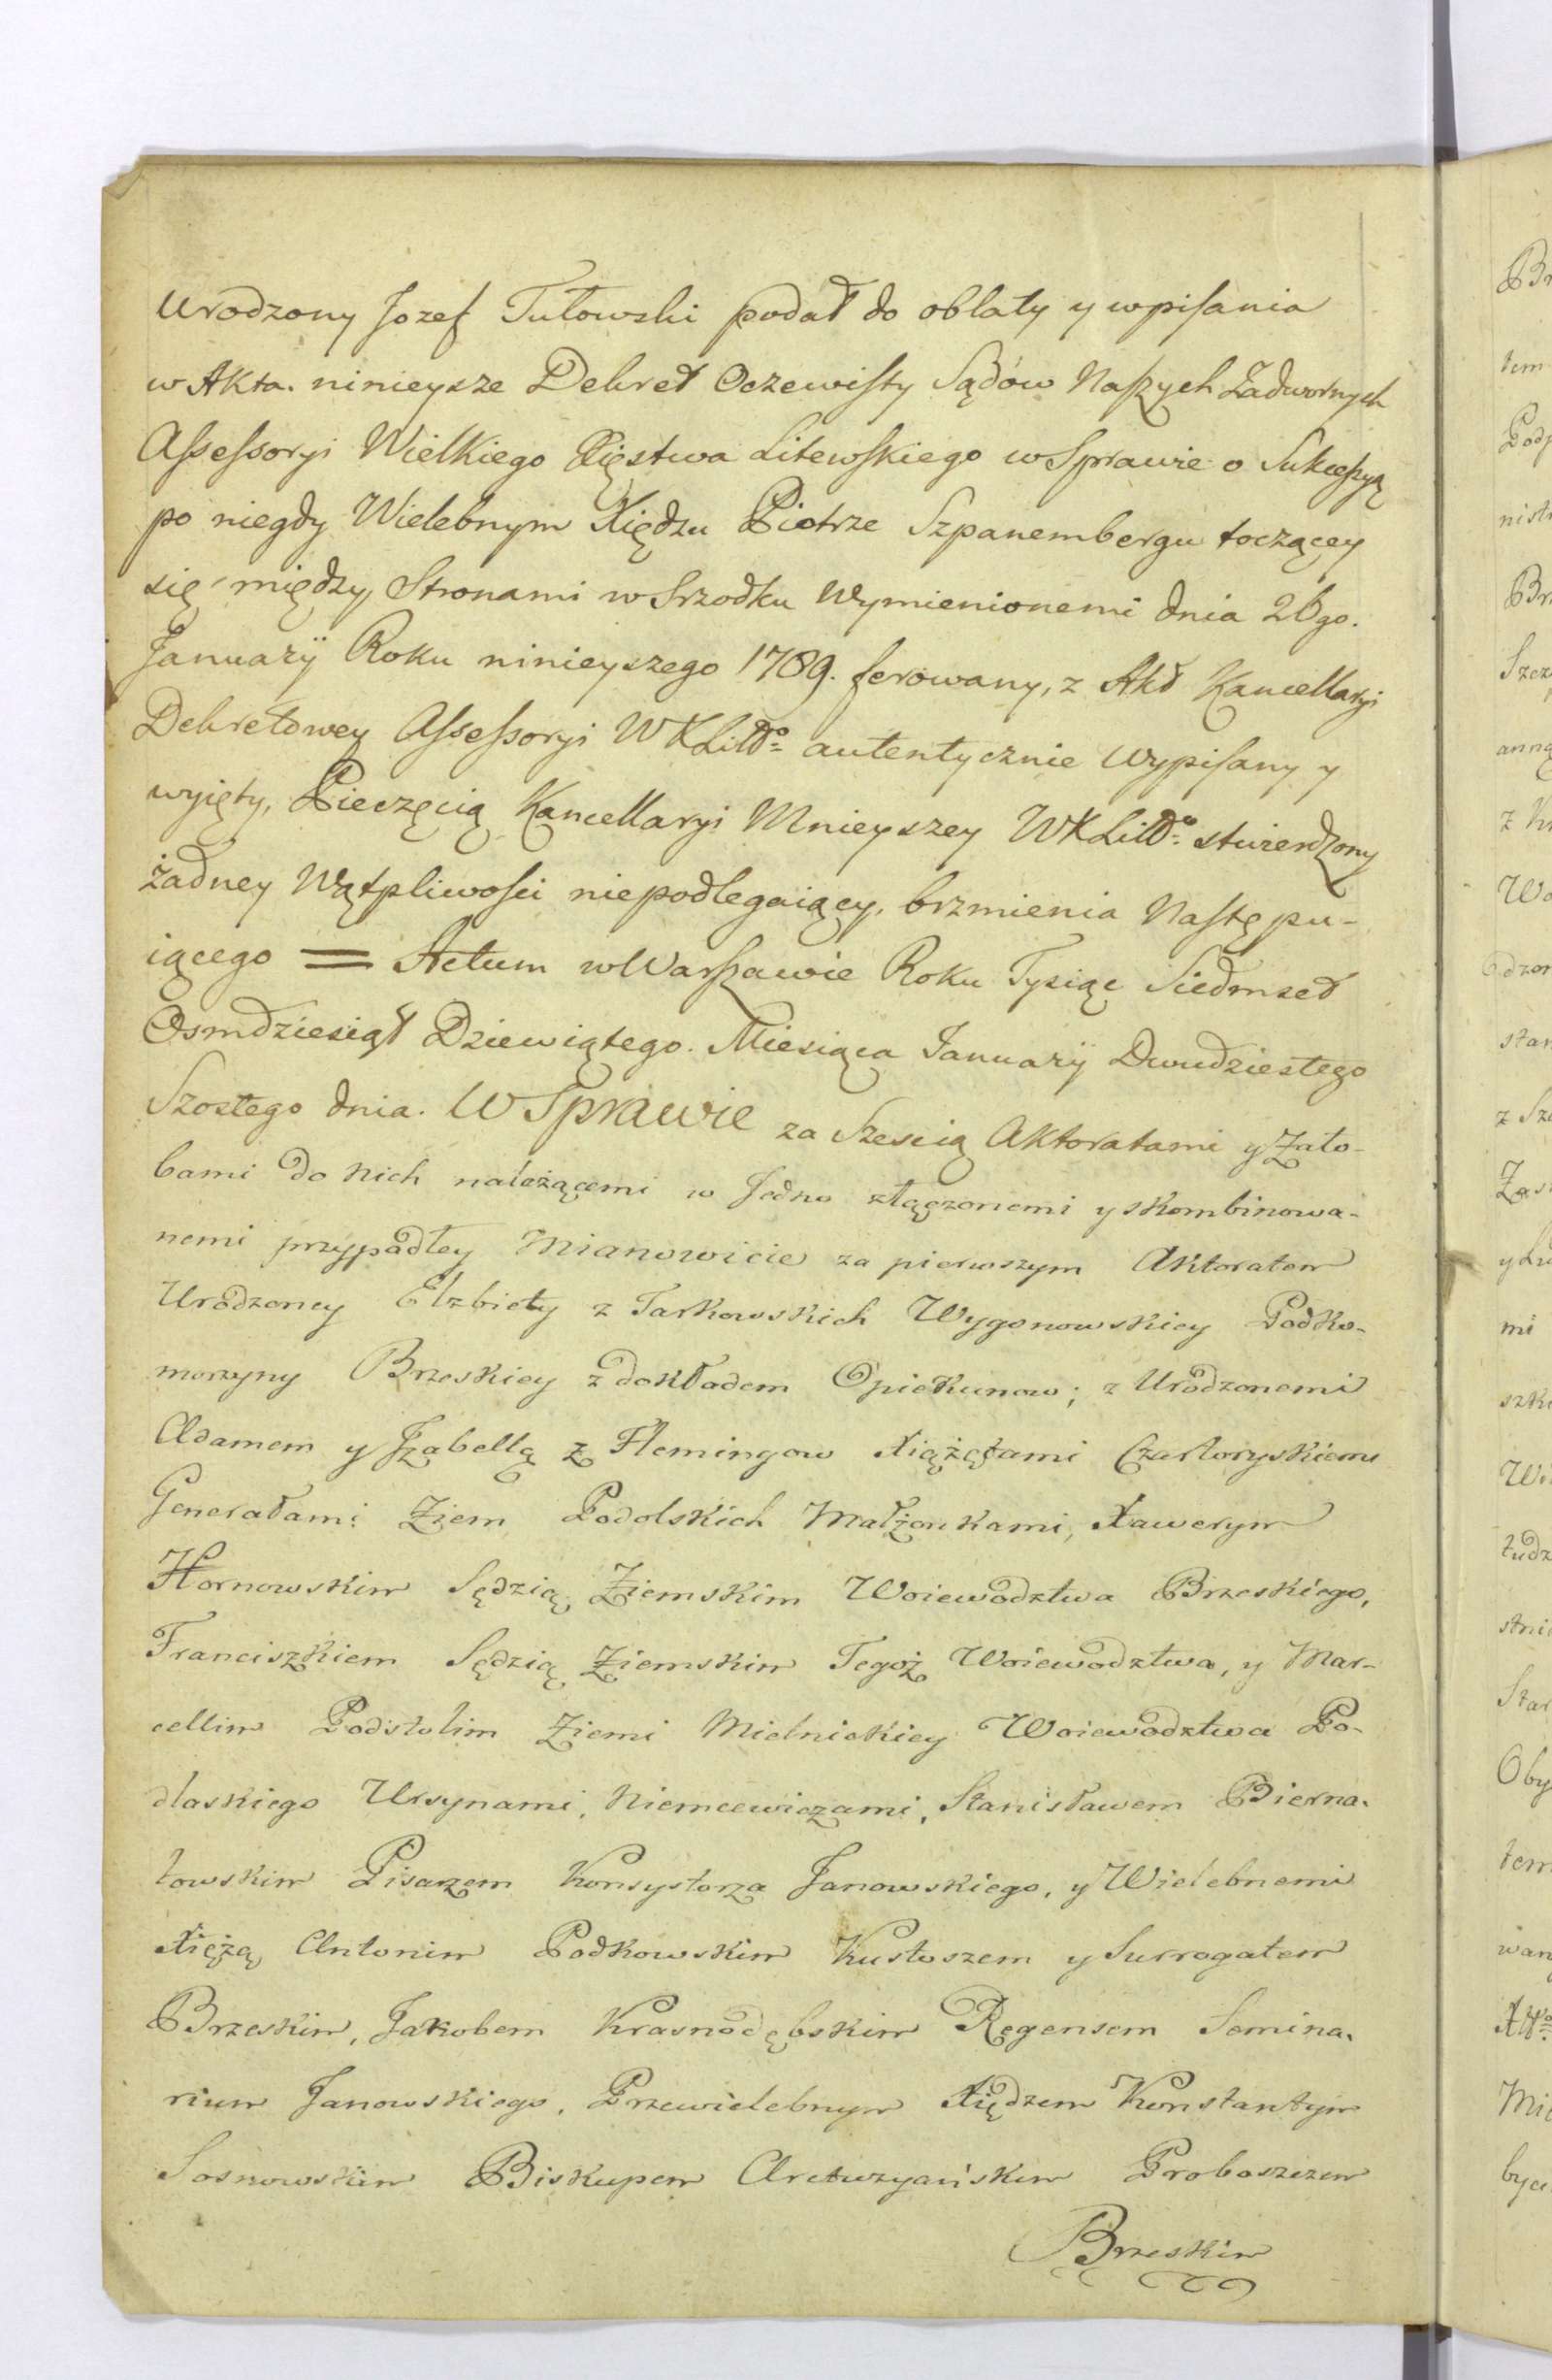 Urodzony Jozef Tutowski podał do oblaty y wpisania
w Akta. ninieysze Dekret Oczewisty Sądów Naszych Zadwornych
Assessoryi Wielkiego Xięstwa Litewskiego w Sprawie o Sukcessyą
po niegdy Wielebnym Xiędzu Piotrze Szpanembergu toczącey
się między Stronami w Srzodku Wymienionemi dnia 26go.
Januarÿ Roku ninieyszego 1789. ferowany, z Akt Kancellaryi
Dekretowey Assessoryi WXLittgo autentycznie wypisany y
wyięty, Pieczęcią Kancellaryi Mnieyszey WXLittgo stwierdzony
żadney Wątpliwosci niepodlegaiący, brzmienia Nastę pu-
iącego = Actum w Warszawie Roku Tysiąc Siedmset
Osmdziesiąt Dziewiątego. Miesiąca Januarÿ Dwudziestego
Szostego dnia. W Sprawie za Szescią Aktoratami y Zało-
bami do Nich należącemi w Jedno złączonemi y skombinowa-
nemi przypadłey Mianowicie za pierwszym Aktoratem
Urodzoney Elzbiety z Tarkowskich Wygonowskiey Podko-
morzyny Brzeskiey z dokładem Opiekunow; z Urodzonemi
Adamem y Jzabellą z Flemingow Xiążętami Czartoryskiemi
Generałami Ziem Podolskich Małżonkami, Xawerym
Hornowskim Sędzią Ziemskim Woiewodztwa Brzeskiego,
Franciszkiem Sędzią Ziemskim Tegoż Woiewodztwa, y Mar-
cellim Podstolim Ziemi Mielnickiey Woiewodztwa Po-
dlaskiego Ursynami, Niemcewiczami, Stanisławem Bierna-
towskim Pisarzem Konsystorza Janowskiego, y Wielebnemi
Xiężą Antonim Podkowskim Kustoszem y Surrogatem
Brzeskim, Jakobem Krasnodębskim Regensem Semina-
rium Janowskiego, Przewielebnym Xiędzem Konstantym
Sosnowskim Biskupem Proboszczem
Brzeskim